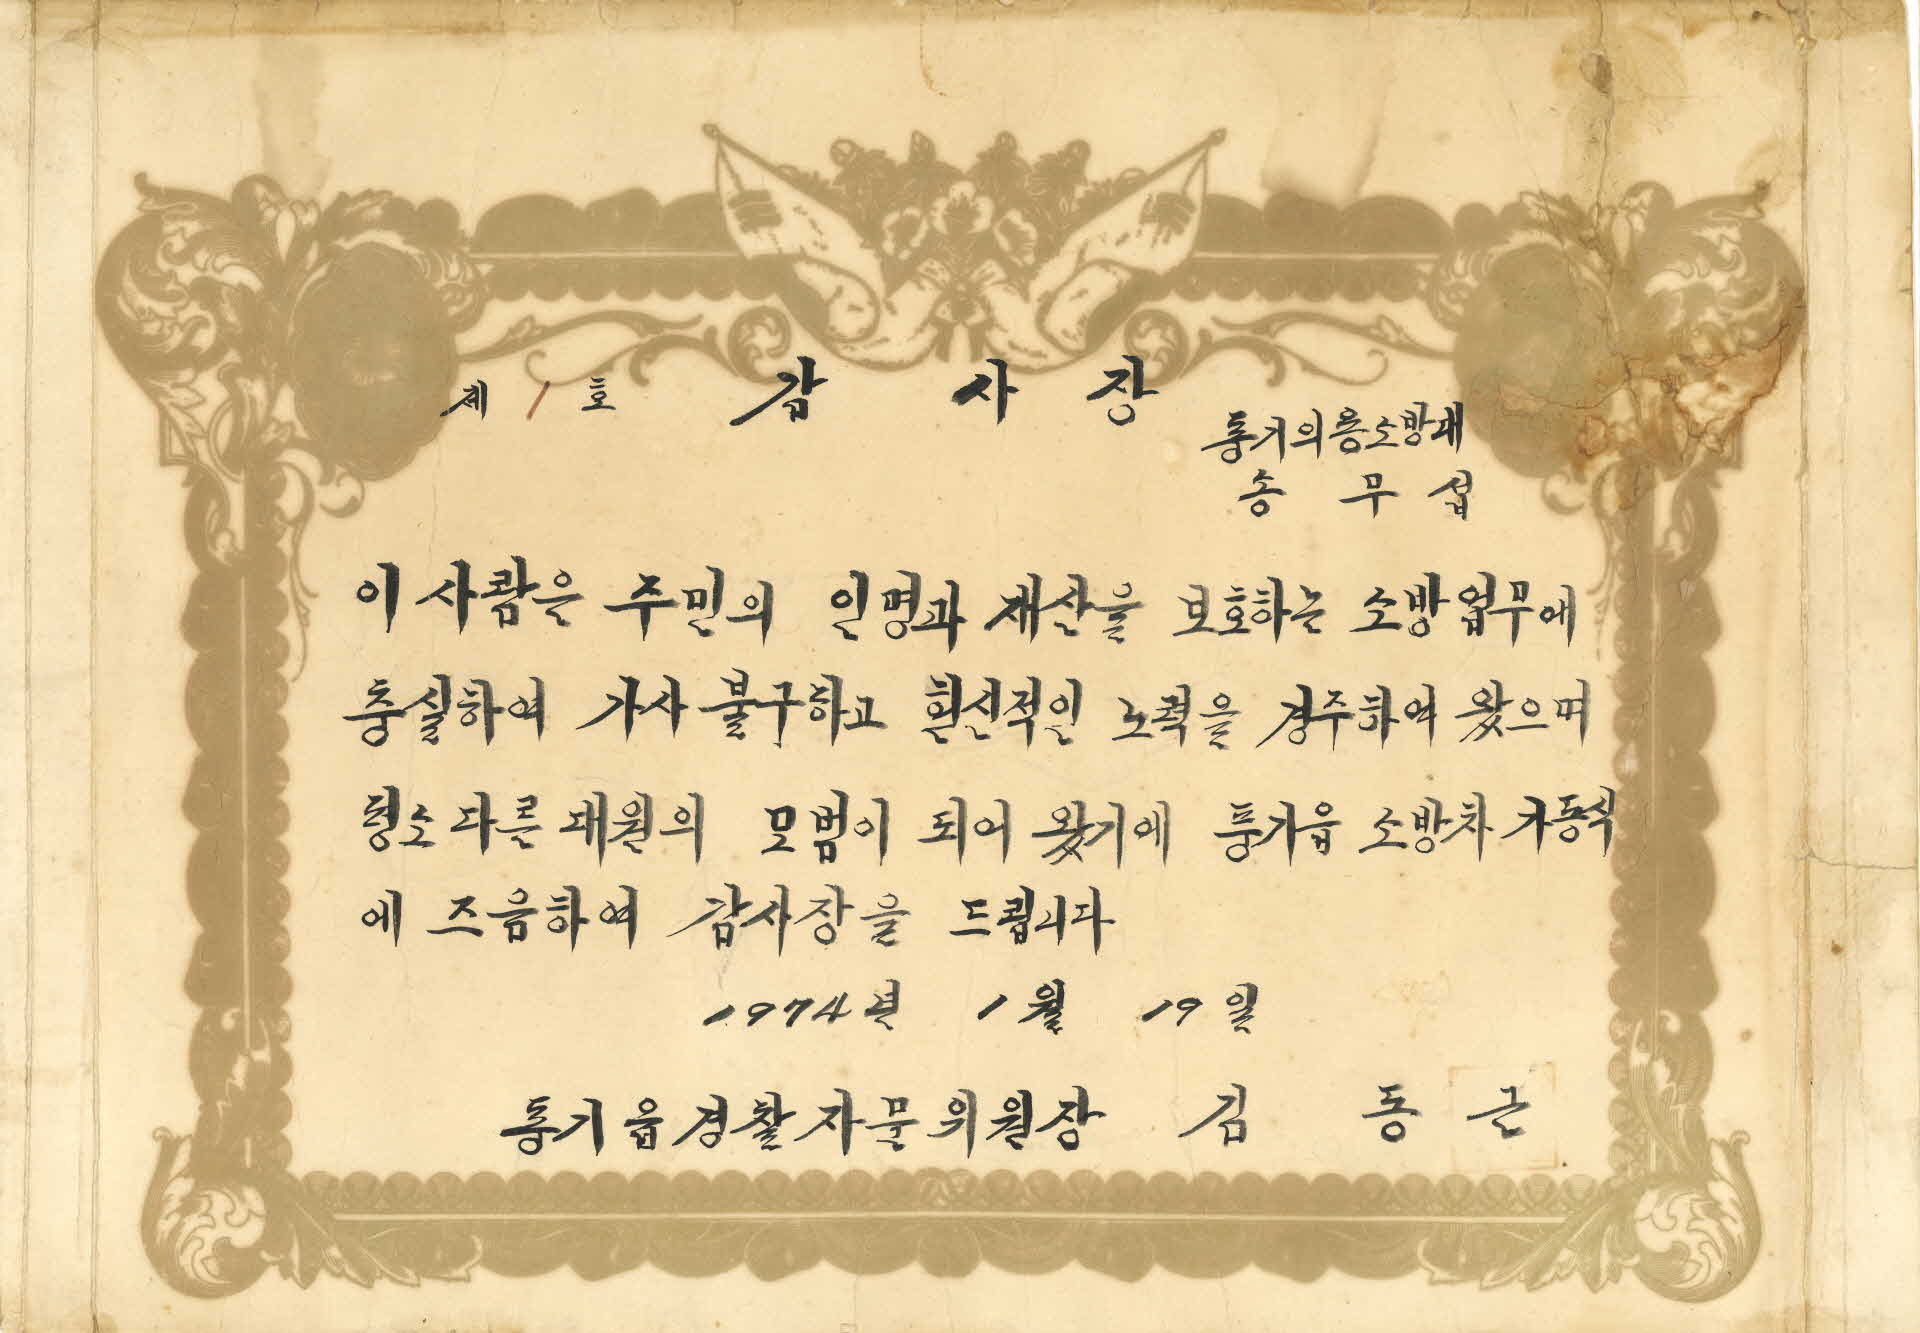 제 1 호 감 사 장
풍기의용소방대
송 무 섭
이 사람은 주민의 인명과 재산을 보호하는 소방업무에
충실하여 가사 불구하고 헌신적인 노력을 경주하여 왔으며
평소 다른 대원의 모범이 되어 왔기에 풍기읍 소방차 가동식
에 즈음하여 감사장을 드립니다
1974년 1월 19일
풍기읍경찰자문위원장 김 동 근